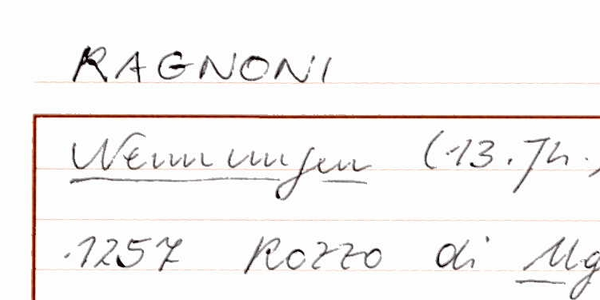 RAGNONI
Nennungen (13. Jh.)
1257 Rozzo di Ug